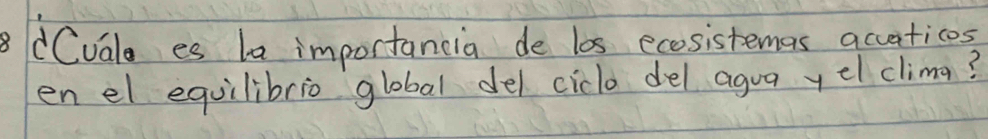 8 ¿Cuále es la importancia de los ecosistemas acuaticos
en el equilibrio global del ciclo del agua y el clima?